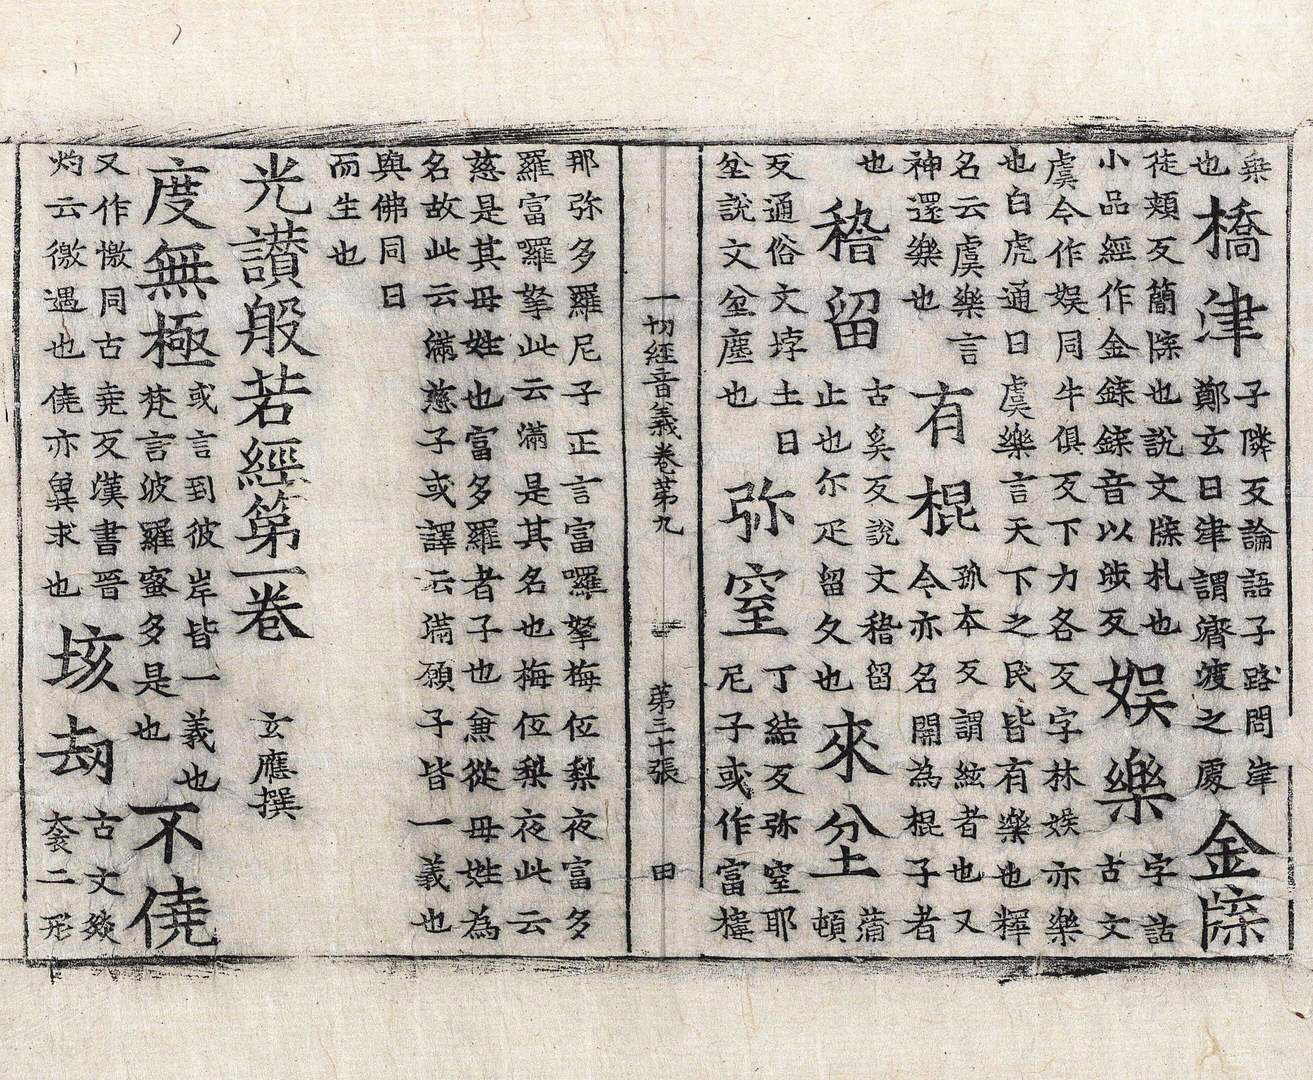 桒
也
橋津
子隣反論語子路問津
鄭玄曰津謂濟渡之處
金牒
徒頰反簡牒也說文牒札也
小品經作金鍱鍱音以涉反
娛樂
字詁
古文
虞今作娱同牛俱反下力各反字林娱亦樂
也白虎通曰虞樂言天下之民皆有樂也釋
名云虞樂言
神還樂也
有棍
孤本反謂絃者也又
今亦名開為棍子者
也
稽留
古奚反說文稽留
止也尒疋留久也
來坌
蒲
頓
反通俗文埻土曰
坌說文坌塵也
弥窒
丁結反弥窒耶
尼子或作富樓
一切經音義卷第九 第三十張 田
那弥多羅尼子正言富囉拏梅低梨夜富多
羅富囉拏此云滿是其名也梅低梨夜此云
慈是其母姓也富多羅者子也兼從母姓為
名故此云滿慈子或譯云滿願子皆一義也
與佛同日
而生也
光讃般若經第一卷 玄應撰
度無極
或言到彼岸皆一義也
梵言波羅蜜多是也
不僥
又作憿同古堯反漢書晉
灼云徼遇也僥亦冀求也
垓劫
古文
二形